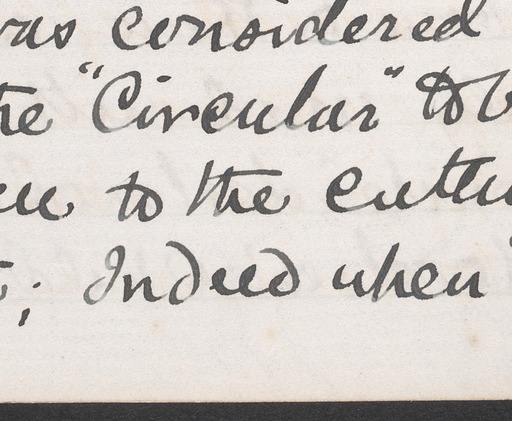 was considered
the "Circular" to b
to the
; Indeed when